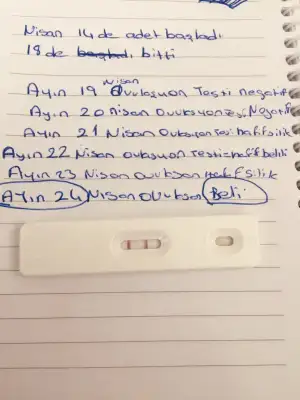 Nisan 14 de adet başladı
18 de başladı bitti
Ayın 19 Nisan Ovulasyon Testi negatif
Ayın 20 Nisan Ovulasyon Negatif
Ayın 21 Nisan Ovulasyon hafif silik
Ayın 22 Nisan ovulasyon testi hafif belili
Ayın 23 Nisan Ovulasyon Hafif Silik
Ayın 24 Nisan Ovulasyon Beli